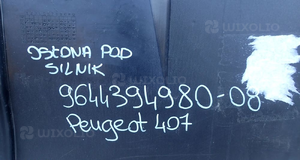 OSŁONA POD
SILNIK
9644394980-08
Peugeot 407
WIXOLID